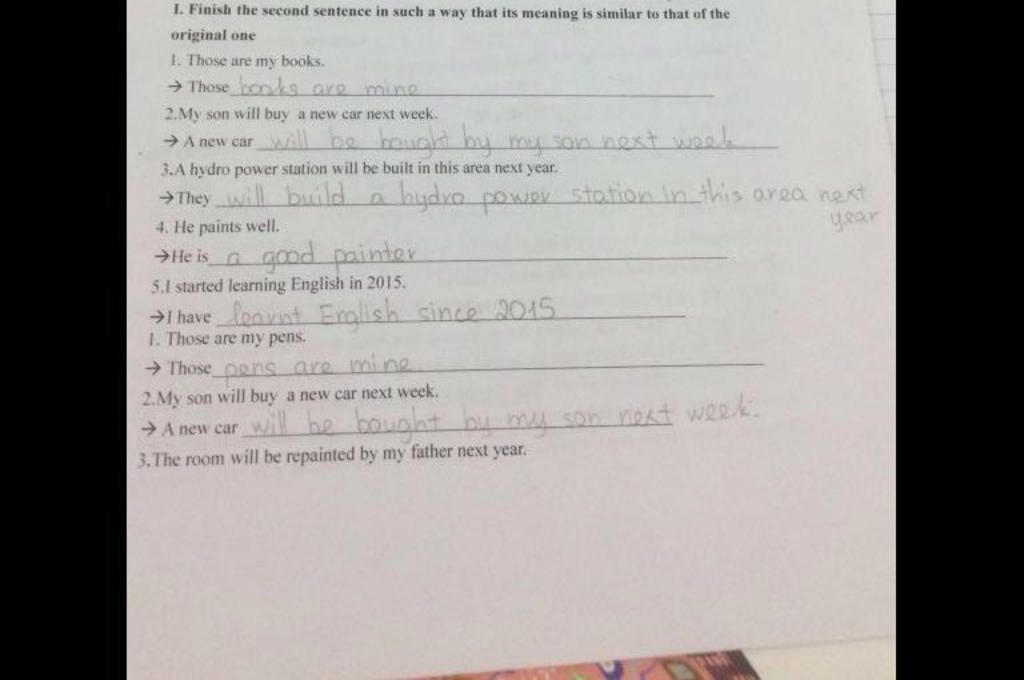 I. Finish the second sentence in such a way that its meaning is similar to that of the
original one
1. Those are my books.
→ Those books are mine
2.My son will buy a new car next week.
→ A new car will be bought by my son next week
3.A hydro power station will be built in this area next year.
→They will build a hydro power station in this area next
year
4. He paints well.
→He is a good painter
5.I started learning English in 2015.
→I have learnt English since 2015
1. Those are my pens.
→ Those pens are mine
2.My son will buy a new car next week.
→ A new car will be bought by my son next week.
3.The room will be repainted by my father next year.